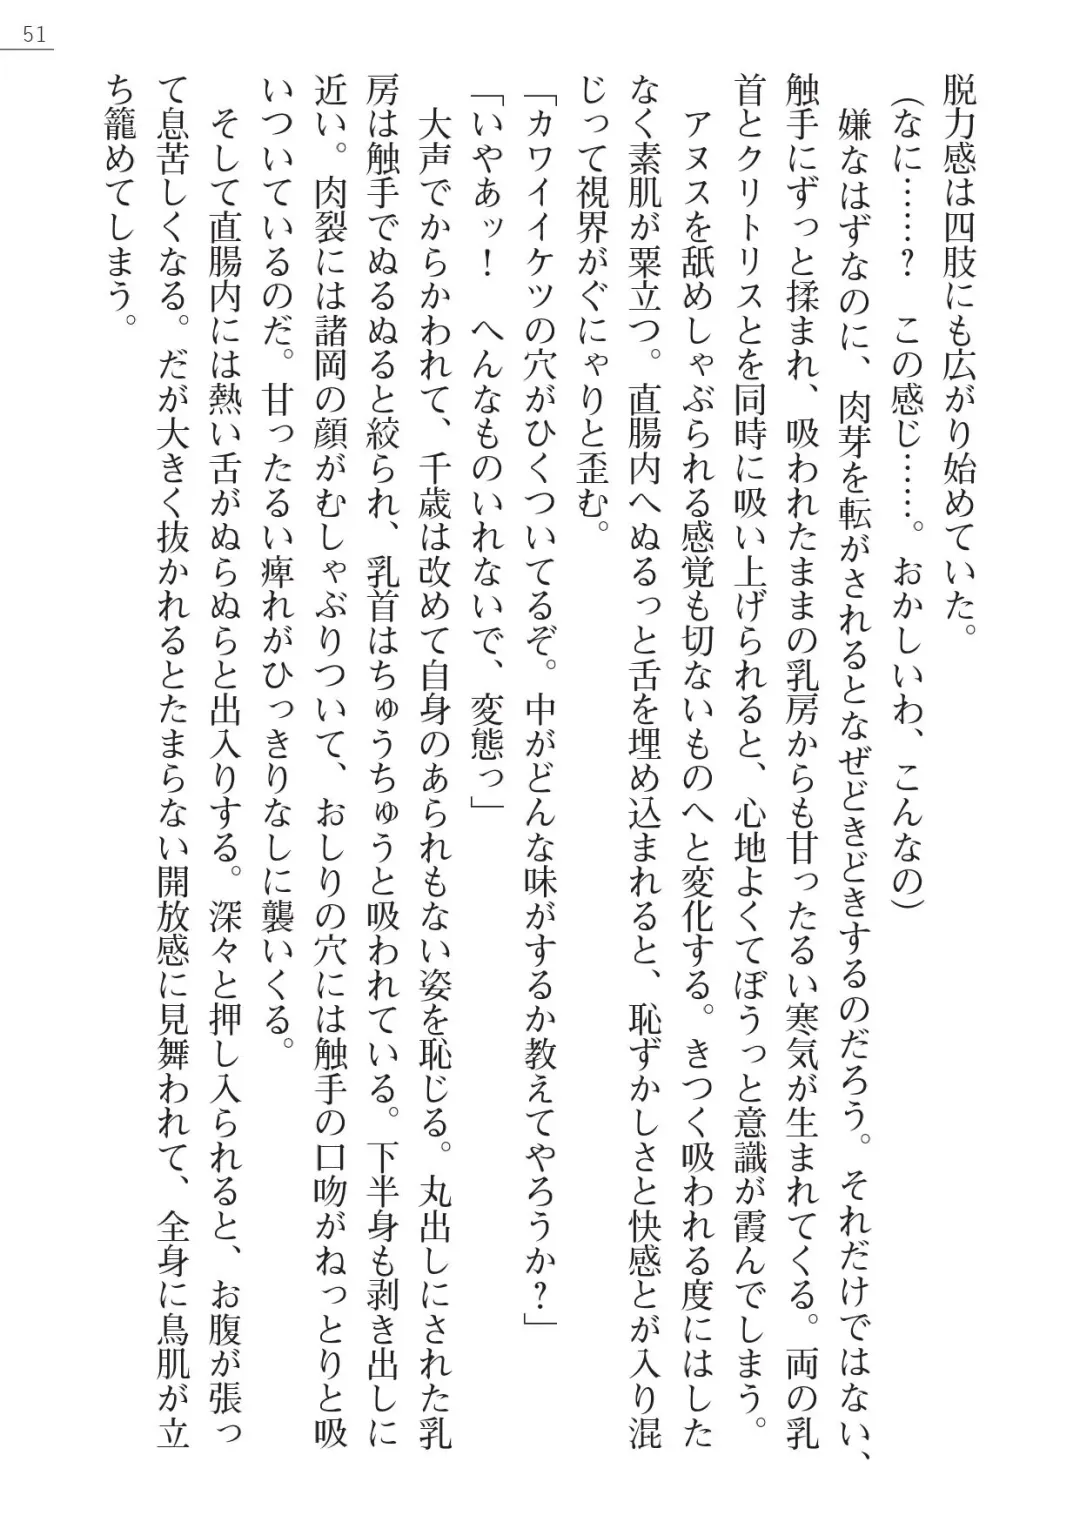 51
脱力感は四肢にも広がり始めていた。
(なに……?　この感じ……。おかしいわ、こんなの)
嫌なはずなのに、肉芽を転がされるとなぜどきどきするのだろう。それだけではない、
触手にずっと揉まれ、吸われたままの乳房からも甘ったるい寒気が生まれてくる。両の乳
首とクリトリスとを同時に吸い上げられると、心地よくてぼうっと意識が霞んでしまう。
アヌスを舐めしゃぶられる感覚も切ないものへと変化する。きつく吸われる度にはした
なく素肌が粟立つ。直腸内へぬるっと舌を埋め込まれると、恥ずかしさと快感とが入り混
じって視界がぐにゃりと歪む。
「カワイイケツの穴がひくついてるぞ。中がどんな味がするか教えてやろうか?」
「いやあッ!　へんなものいれないで、変態っ」
大声でからかわれて、千歳は改めて自身のあられもない姿を恥じる。丸出しにされた乳
房は触手でぬるぬると絞られ、乳首はちゅうちゅうと吸われている。下半身も剥き出しに
近い。肉裂には諸岡の顔がむしゃぶりついて、おしりの穴には触手の口吻がねっとりと吸
いついているのだ。甘ったるい痺れがひっきりなしに襲いくる。
そして直腸内には熱い舌がぬらぬらと出入りする。深々と押し入られると、お腹が張っ
て息苦しくなる。だが大きく抜かれるとたまらない開放感に見舞われて、全身に鳥肌が立
ち籠めてしまう。